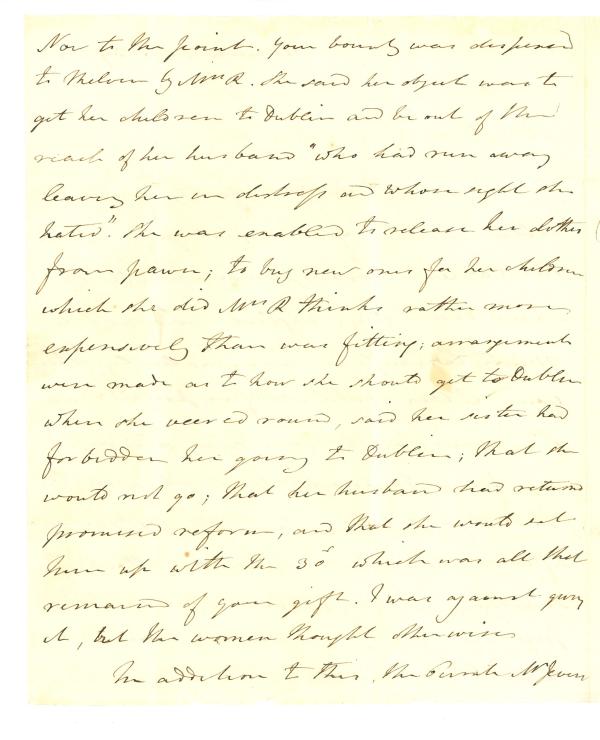 Now to the point. Your bounty was dispensed
to by Mrs. R. She said her object was to
get her children to Dublin and be out of the
reach of her husband "who had run away
leaving her in distress and whose sight she
hated". She was enabled to release her clothes
from pawn; to buy new ones for her children
which she did Mrs R thinks rather more
expensively than was fitting; arrangements
were made as to how she should get to Dublin
when she veered round, said her sister had
forbidden her going to Dublin; that she
would not go; that her husband had returned
promised reform, and that she would set
him up with the which was all that
remained of your gift. I was against giving
it, but the women thought otherwise
In addition to this, the Mr